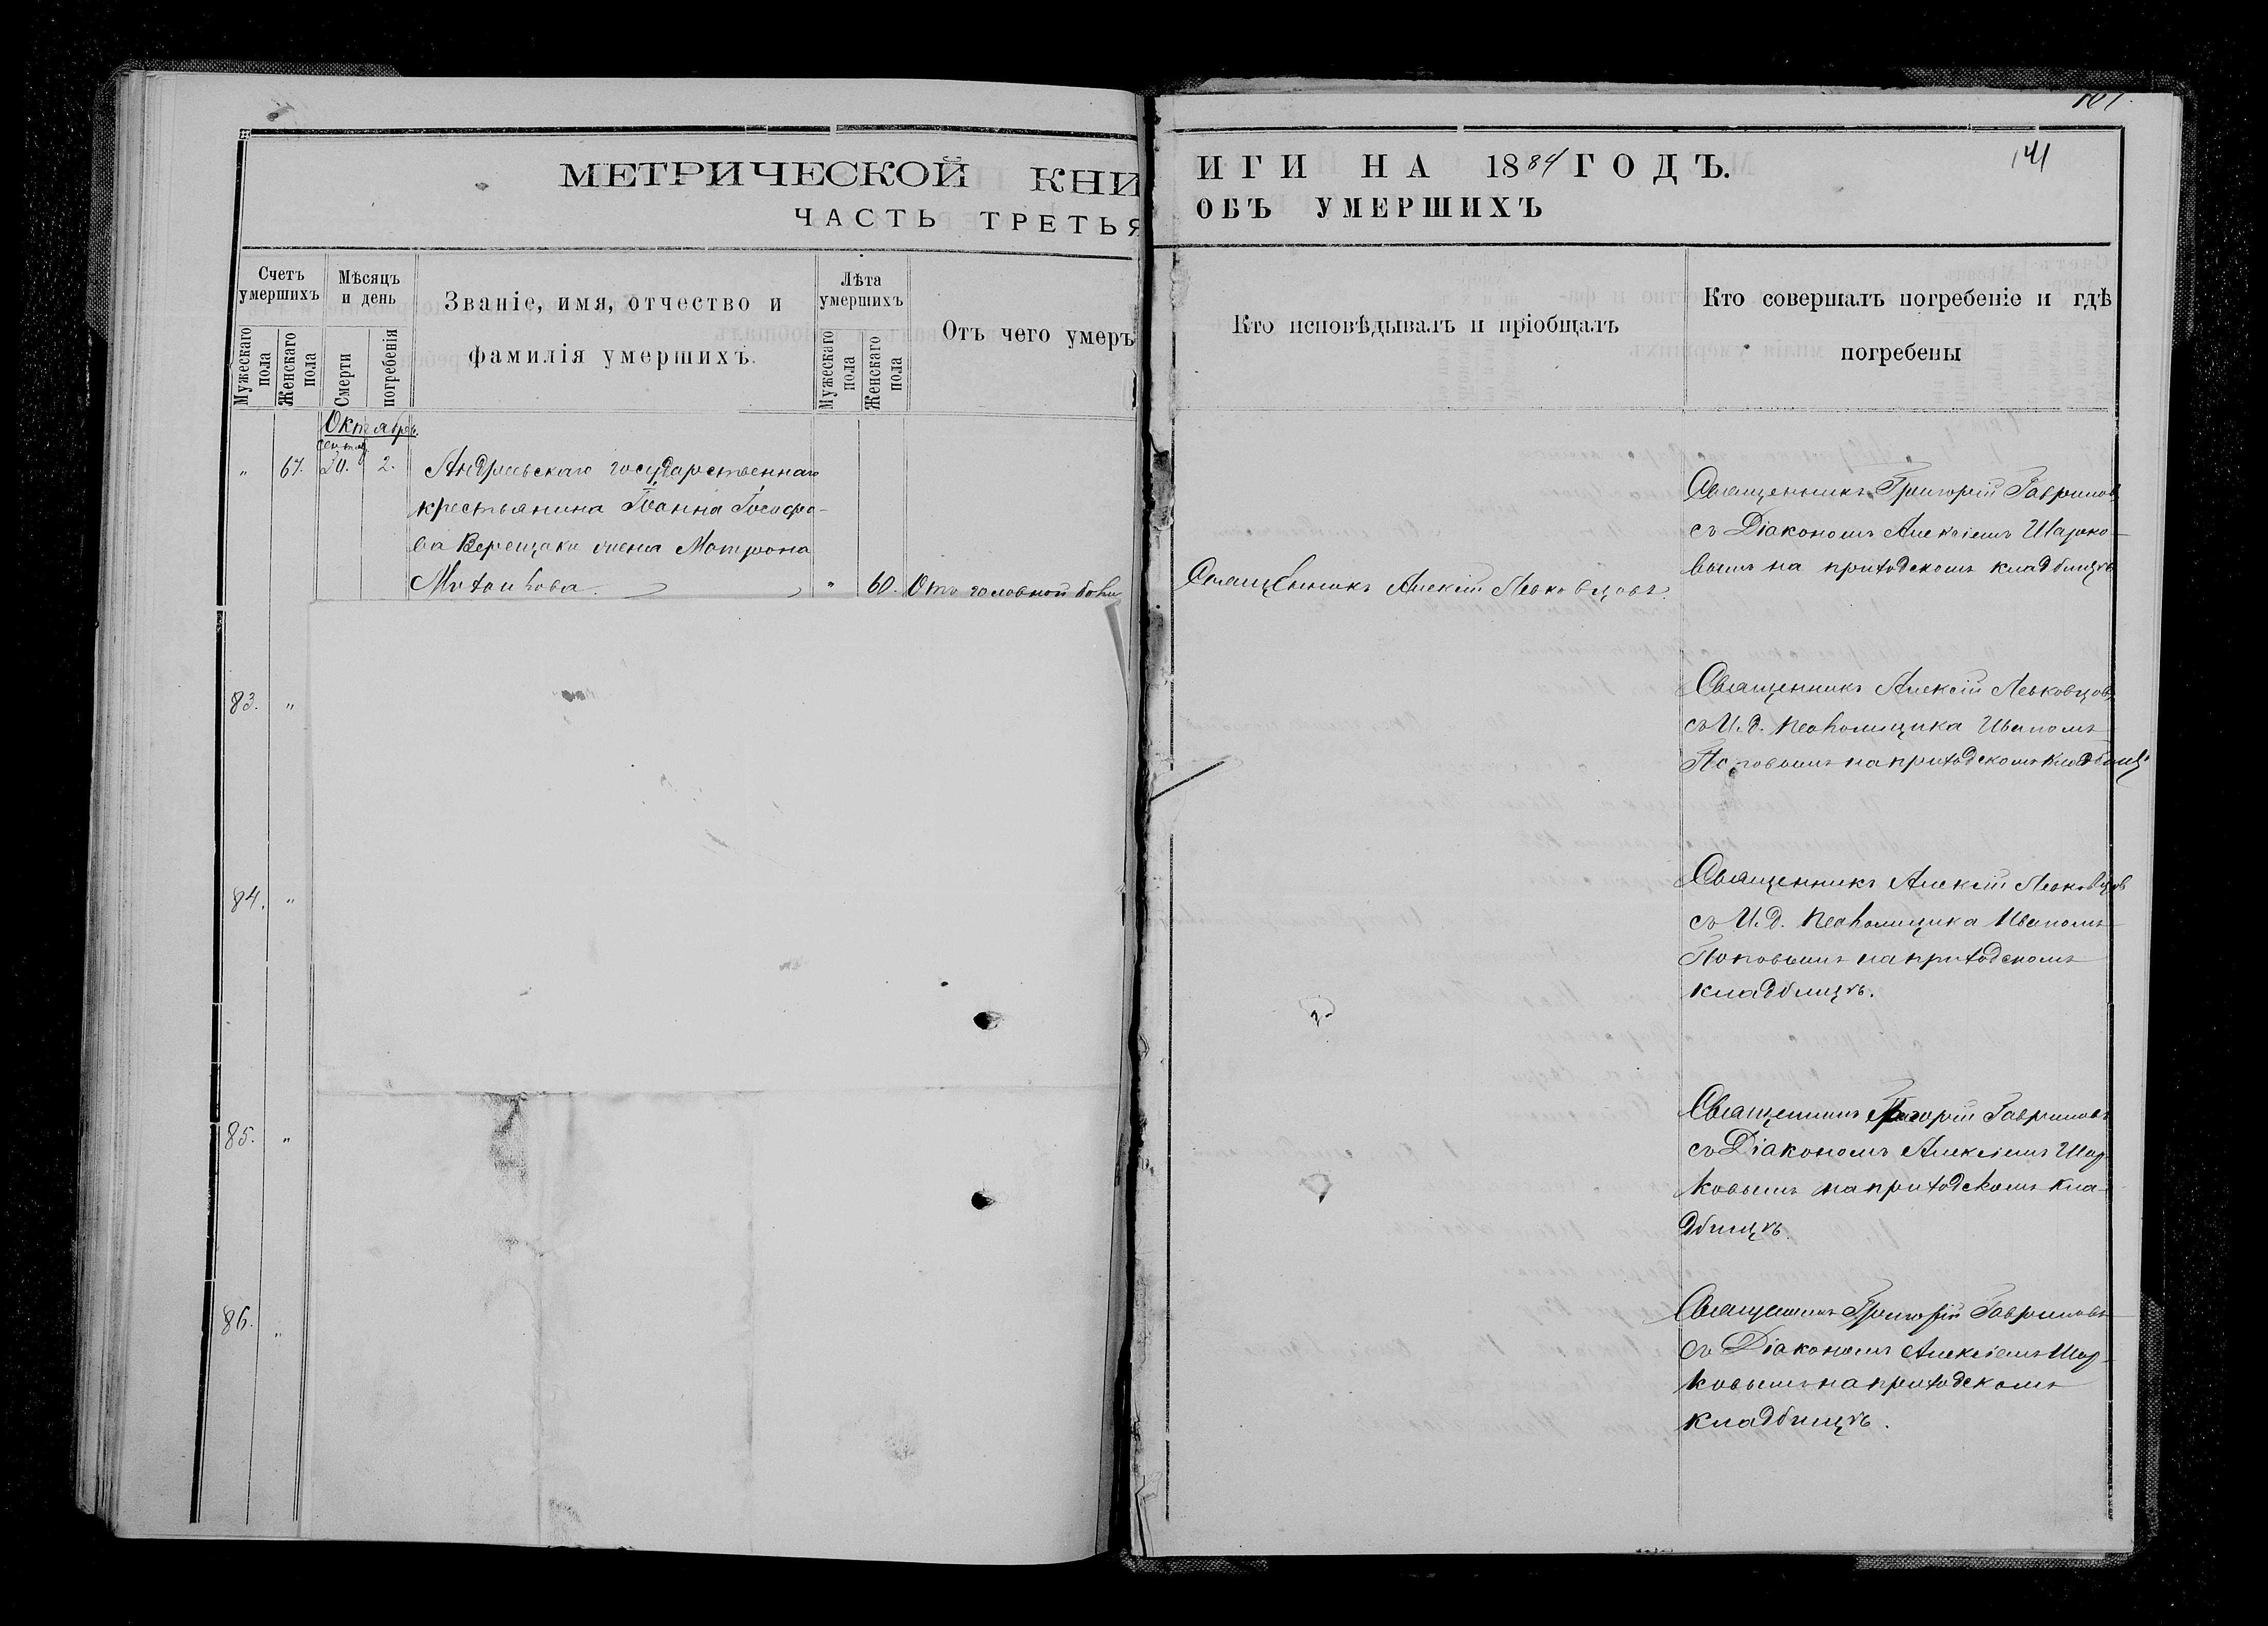 МЕТРИЧЕСКОЙ КНИ
ЧАСТЬ ТРЕТЬЯ
Счетъ умершихъ
Мужескаго пола
Женскаго пола
Мѣсяцъ и день
Смерти
погребенія
Званіе, имя, отчество и
фамилія умершихъ.
Лѣта умершихъ
Мужескаго пола
Женскаго пола
Отъ чего умеръ
Октябрь.
" 67. 30. 2. Андреевскаго государственнаго
крестьянина Іоанна Іосифо-
ва Верещаки жена Матрона
" 60. Отъ головной боли
83. "
84. "
85. "
86. "
ИГИ НА 1884 ГОДЪ.
ОБЪ УМЕРШИХЪ
141
Кто исповѣдывалъ и пріобщалъ
Кто совершалъ погребеніе и гдѣ
погребены
Священникъ Алексій Левковцовъ.
Священникъ Григорій Гавриловъ
съ Діакономъ Алексіемъ Шарко-
вымъ на приходскомъ кладбищѣ
Священникъ Алексій Левковцовъ
съ И. д. Псаломщика Иваномъ
Поповымъ на приходскомъ кладбищѣ
Священникъ Алексій Левковцовъ
съ И. д. Псаломщика Иваномъ
Поповымъ на приходскомъ
кладбищѣ.
Священникъ Григорій Гавриловъ
съ Діакономъ Алексіемъ Шар-
ковымъ на приходскомъ кла-
дбищѣ.
Священникъ Григорій Гавриловъ
съ Діакономъ Алексіемъ Шар-
ковымъ на приходскомъ
кладбищѣ.